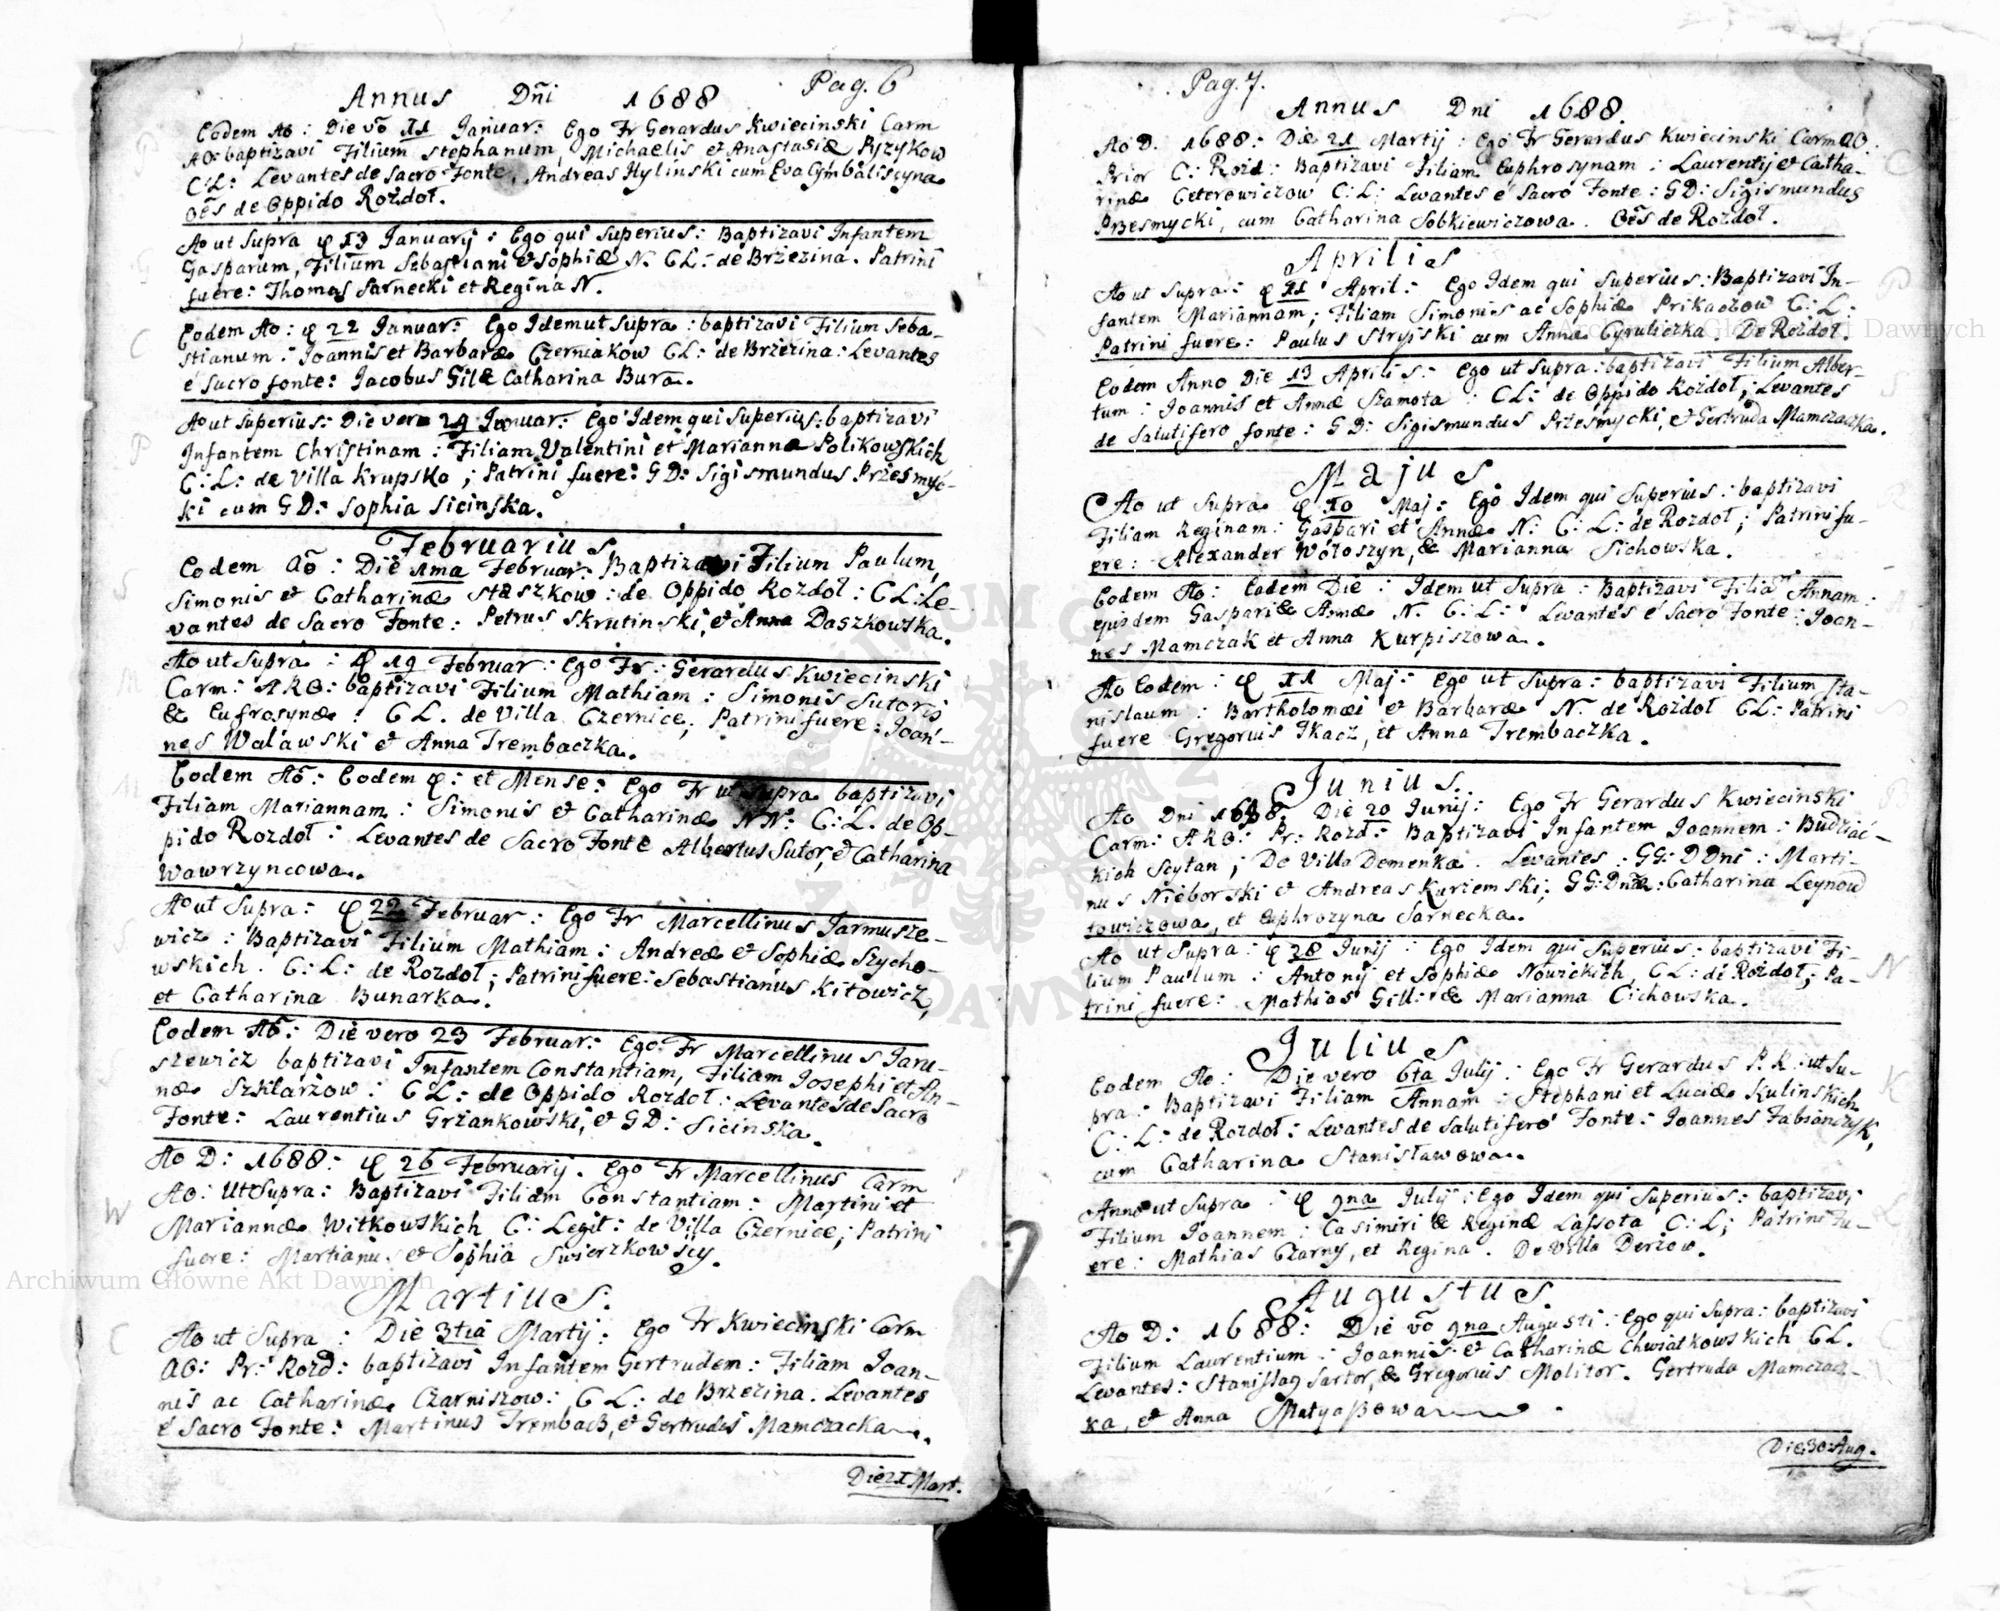 Pag. 6
Annus Dñi 1688
Eodem Ao: Die vō 11 Januar: Ego Fr Gerardus Kwiecinski Carm
AO: baptizavi Filium Stephanum, Michaelis et Anastasiæ Pyzykow
C:L: Levantes de Sacro Fonte, Andreas Hylinski cum Eva Cymbaliscyna
oēs de Oppido Rozdoł.
Ao ut Supra 13 Januarij: Ego qui Superius: Baptizavi Infantem
Gasparum, Filium Sebastiani et Sophiæ N. CL: de Brzezina. Patrini
fuere: Thomas Sarnecki et Regina N.
Eodem Ao: 22 Januar: Ego Idem ut Supra: baptizavi Filium Seba-
stianum: Joannis et Barbaræ Czerniakow CL: de Brzezina: Levantes
é Sacro fonte: Jacobus Gil & Catharina Bura.
Ao ut Superius: Die vero 29 Januar: Ego Idem qui Superius: baptizavi
Infantem Christinam: Filiam Valentini et Mariannæ Polikowskich
C:L: de Villa Krupsko; Patrini fuere: GD: Sigismundus Przesmyc-
ki cum GD: Sophia Sicinska.
Februarius
Eodem Aō: Die 1ma Februar: Baptizavi Filium Paulum,
Simonis et Catharinæ Staszkow: de Oppido Rozdoł: CL: Le-
vantes de Sacro Fonte: Petrus Skrutinski, et Anna Daszkowska.
Ao ut Supra: 19 Februar: Ego Fr: Gerardus Kwiecinski
Carm: ARO: baptizavi Filium Mathiam: Simonis Sutoris
& Eufrosynæ: CL. de Villa Czernice; Patrini fuere: Joan-
nes Walawski et Anna Trembaczka.
Eodem Aō: Eodem : et Mense: Ego Fr ut Supra baptizavi
Filiam Mariannam: Simonis et Catharinæ NN: C:L. de Op-
pido Rozdoł: Levantes de Sacro Fonte Albertus Sutor, et Catharina
Wawrzyncowa.
Ao ut Supra: 22 Februar: Ego Fr Marcellinus Jarmusze-
wicz: Baptizavi Filium Mathiam: Andreæ et Sophiæ Szycho-
wskich. C:L: de Rozdoł; Patrini fuere: Sebastianus Kitowicz,
et Catharina Bunarka.
Eodem Aō: Die vero 23 Februar: Ego Fr Marcellinus Jaru-
szewicz baptizavi Infantem Constantiam, Filiam Josephi et An-
næ Szklarzow: CL: de Oppido Rozdoł: Levantes de Sacro
Fonte: Laurentius Grzankowski, et GD: Sicinska.
Ao D: 1688: 26 Februarij. Ego Fr Marcellinus Carm
AO: Ut Supra: Baptizavi Filiam Constantiam: Martini et
Mariannæ Witkowskich C: Legit: de Villa Czernice; Patrini
fuere: Martianus et Sophia Swierzkowscy.
Martius.
Ao ut Supra: Die 3tia Martij: Ego Fr Kwiecinski Carm
AO: Pr: Rozd: baptizavi Infantem Gertrudem: Filiam Joan-
nis ac Catharinæ Czarniszow: CL: de Brzezina. Levantes
é Sacro Fonte: Martinus Trembacz, et Gertrudes Mamczacka.
Die 21 Mart.
Pag. 7.
Annus Dni 1688.
Ao D. 1688: Die 21 Martij: Ego Fr Gerardus Kwiecinski Carm AO:
Prior C: Rozd: Baptizavi Filiam Euphrosynam: Laurentij et Catha-
rinæ Ceterowiczow C:L: Levantes é Sacro Fonte: GD: Sigismundus
Przesmycki, cum Catharina Sobkiewiczowa. Oēs de Rozdoł.
Aprilis
Ao ut Supra: 11 April: Ego Idem qui Superius: Baptizavi In-
fantem Mariannam; Filiam Simonis ac Sophiæ Prikaczow C:L:
Patrini fuere: Paulus Stryiski cum Anna Cyruliczka. De Rozdoł.
Eodem Anno Die 13 Aprilis: Ego ut Supra: baptizavi Filium Alber-
tum: Joannis et Annæ Szamota: CL: de Oppido Rozdoł; Levantes
de Salutifero fonte: GD: Sigismundus Przesmycki, et Gertruda Mamczacka.
Majus
Ao ut Supra 10 Maj: Ego Idem qui Superius: baptizavi
Filiam Reginam: Gaspari et Annæ N: C:L: de Rozdoł; Patrini fu-
ere: Alexander Wołoszyn, & Marianna Sichowska.
Eodem Ao: Eadem Die: Idem ut Supra: Baptizavi Filiā Annam:
ejusdem Gaspari & Annæ N. C:L: Levantes é Sacro Fonte: Joan-
nes Mamczak et Anna Kurpiszowa.
Ao Eodem: 11 Maj: Ego ut Supra: baptizavi Filium Sta-
nislaum: Bartholomæi et Barbaræ N. de Rozdoł CL: Patrini
fuere Gregorius Tkacz, et Anna Trembaczka.
Junius.
Ao Dni 1688. Die 20 Junij: Ego Fr Gerardus Kwiecinski
Carm: ARO: Pr: Rozd: Baptizavi Infantem Joannem: Budziac-
kich Scytan; De Villa Demenka. Levantes: GG: DDni: Marti-
nus Nieborski et Andreas Kurzemski; GG: Dnæ: Catharina Leynow
towiczowa, et Euphrozyna Sarnecka.
Ao ut Supra: 28 Junij: Ego Idem qui Superius: baptizavi Fi-
lium Paulum: Antonij et Sophiæ Nowickich, CL: de Rozdoł; Pa-
trini fuere: Mathias Gill: & Marianna Cichowska.
Julius
Eodem Ao: Die vero 6ta Julij: Ego Fr Gerardus P.R: ut Su-
pra: Baptizavi Filiam Annam: Stephani et Luciæ Kulinskich
C:L: de Rozdoł: Levantes de Salutifero Fonte: Joannes Fabianczyk,
cum Catharina Stanisławowa.
Anno ut Supra: 9na Julij: Ego Idem qui Superius: baptizavi
Filium Joannem: Casimiri & Reginæ Lassota C:L; Patrini Fu-
ere: Mathias Czarny, et Regina. De Villa Derzow.
Augustus.
Ao D: 1688: Die vō 9na Augusti: Ego qui Supra: baptizavi
Filium Laurentium: Joannis et Catharinæ Chwiatkowskich CL.
Levantes: Stanislaus Sartor, & Gregorius Molitor. Gertruda Mamczacz-
ka, et Anna Matyaszowa.
Die 30: Aug.
Archiwum Główne Akt Dawnych
Archiwum Główne Akt Dawnych